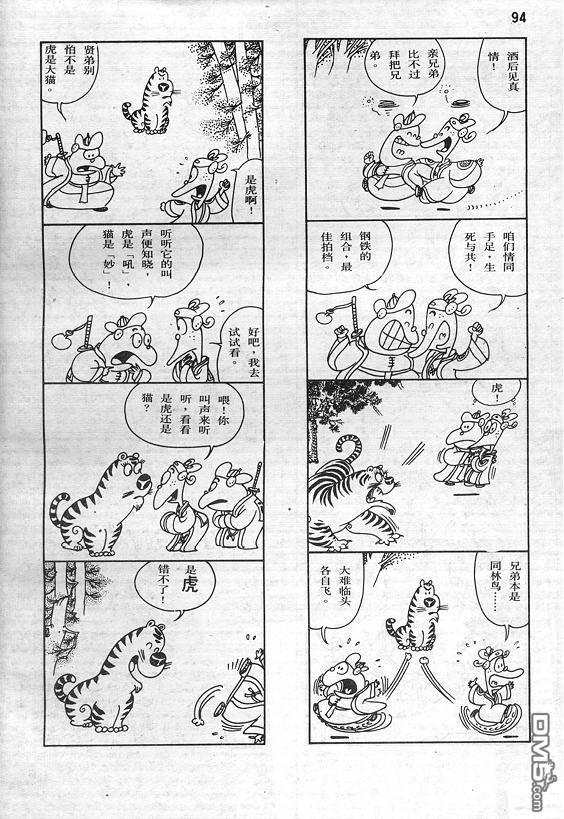 94
酒后见真
情！
亲兄弟
比不过
拜把兄
弟。
咱们情同
手足，生
死与共！
钢铁的
组合，最
佳拍档。
虎！
兄弟本是
同林鸟……
大难临头
各自飞。
贤弟别
怕不是
虎是大猫。
是虎啊！
听听它的叫
声便知晓，
虎是「吼」，
猫是「妙」！
好吧，我去
试试看。
喂！你
叫声来听
听，看看
是虎还是
猫？
是虎
错不了！
DM5
.com